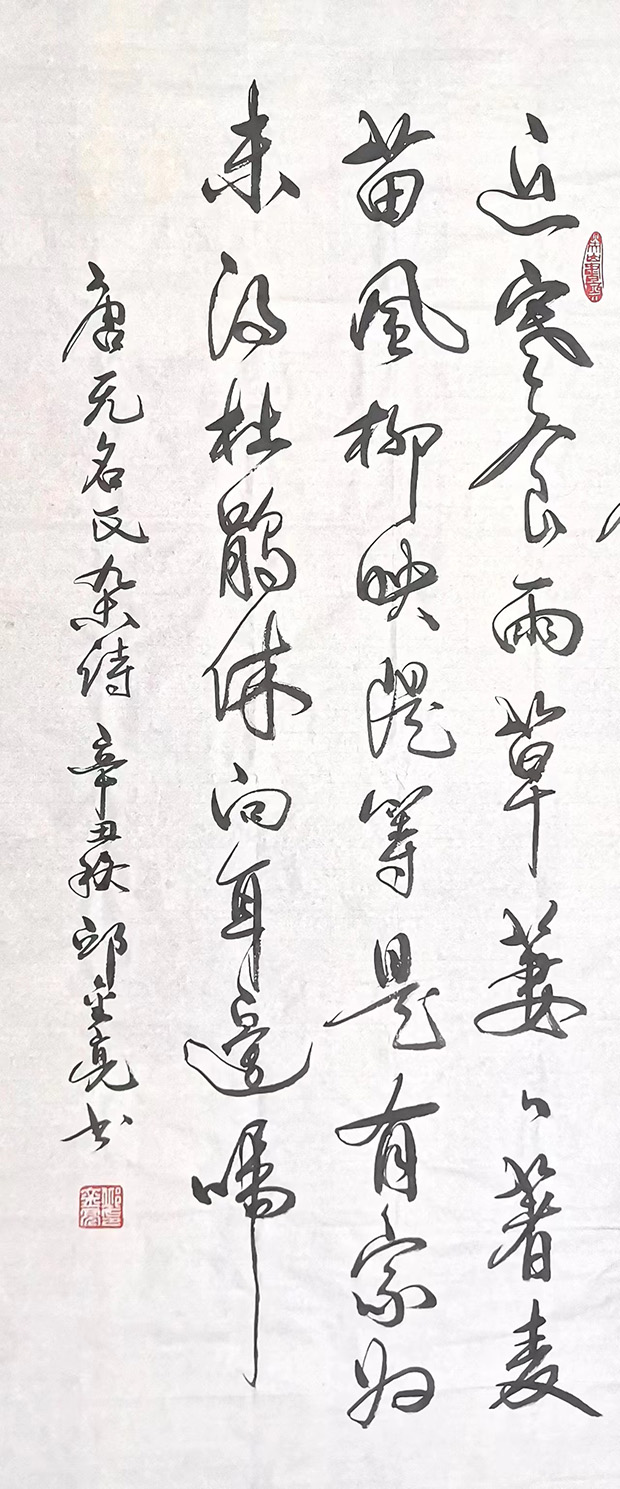 近寒食雨草萋々著麦
苗風柳映堤等是有家归
未得杜鵑休向耳邊啼
唐无名氏杂诗 辛丑秋 邱金亮书